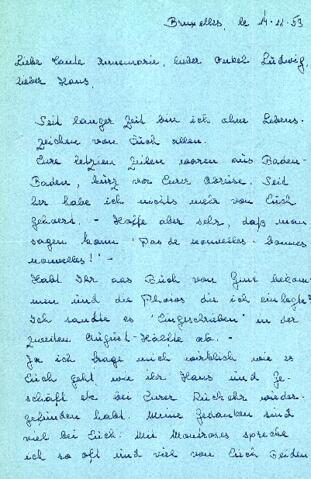 Bruxelles, le 14-12-53
Liebe Tante Annemarie, lieber Onkel Ludwig,
lieber Hans,
Seit langer Zeit bin ich ohne Lebens-
zeichen von Euch allen.
Eure letzten Zeilen waren aus Baden-
Baden, kurz vor Eurer Abreise. Seit
her habe ich nichts mehr von Euch
gehoert. - Hoffe aber sehr, daß man
sagen kann "Pas de nouvelles - bonnes
nouvelles!" -
Habt Ihr das Buch von bekom-
men und die Photos die ich einlegte?
Ich sandte es "Eingeschrieben" in der
zweiten August-Hälfte ab. -
Ja ich frage mich wirklich wie es
Euch geht wie ihr Haus und Ge-
schäft etc bei Eurer Rückkehr wieder-
gefunden habt. Meine Gedanken sind
viel bei Euch. Mit spreche
ich so oft und viel von Euch Beiden